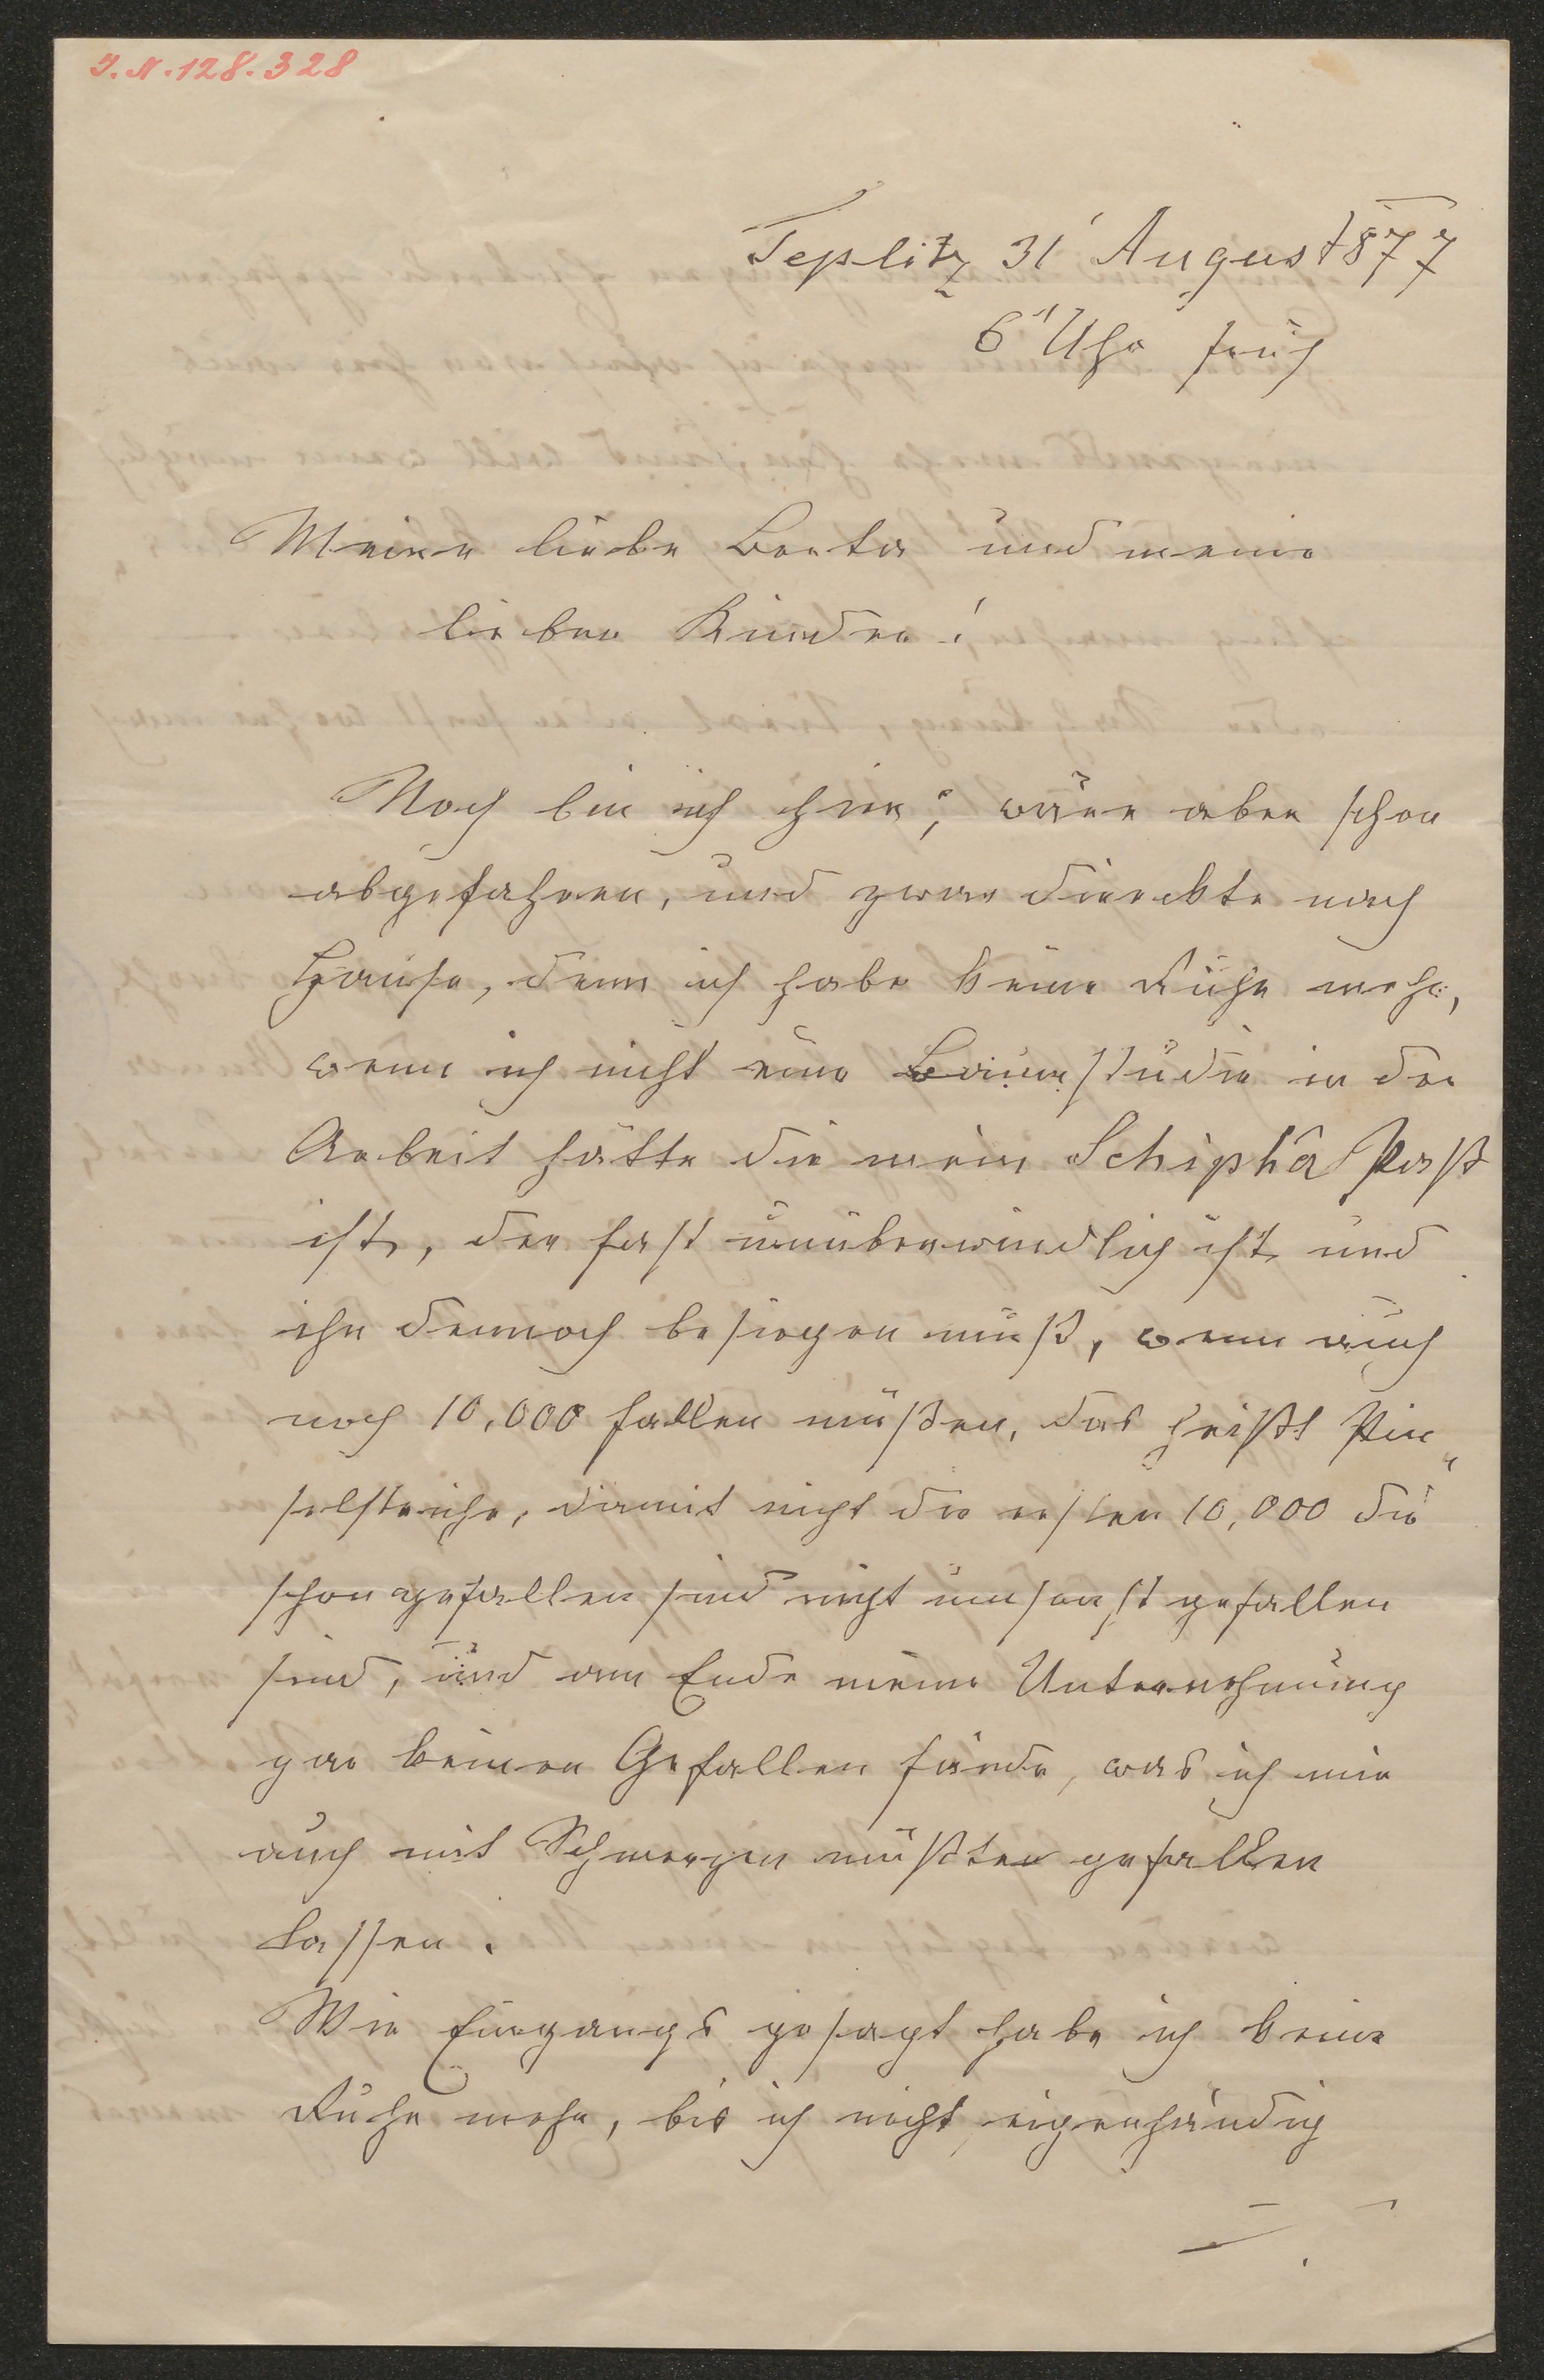 I.N. 128.328
Teplitz 31' August 877
6" Uhr früh
Meine liebe Berta und meine
lieben Kinder!
Noch bin ich hier; wäre aber schon
abgefahren, und zwar direckte nach
Hause, denn ich habe keine Ruhe mehr,
wenn ich nicht eine Baumstudie in der
Arbeit hätte die mein Schipka Paß
ist, der fast unüberwindlich ist und
ihn dennoch besiegen muß, wenn auch
noch 10,000 fallen müßen, das heißt Pin„
selstriche, damit nicht die ersten 10,000 die
schon gefallen sind nicht umsonst gefallen
sind, und am Ende meine Unternehmung
gar keinen Gefallen fände, was ich mir
auch mit Schmerzen müßte gefallen
lassen.
Wie Eingangs gesagt habe ich keine
Ruhe mehr, bis ich nicht eigenhändig